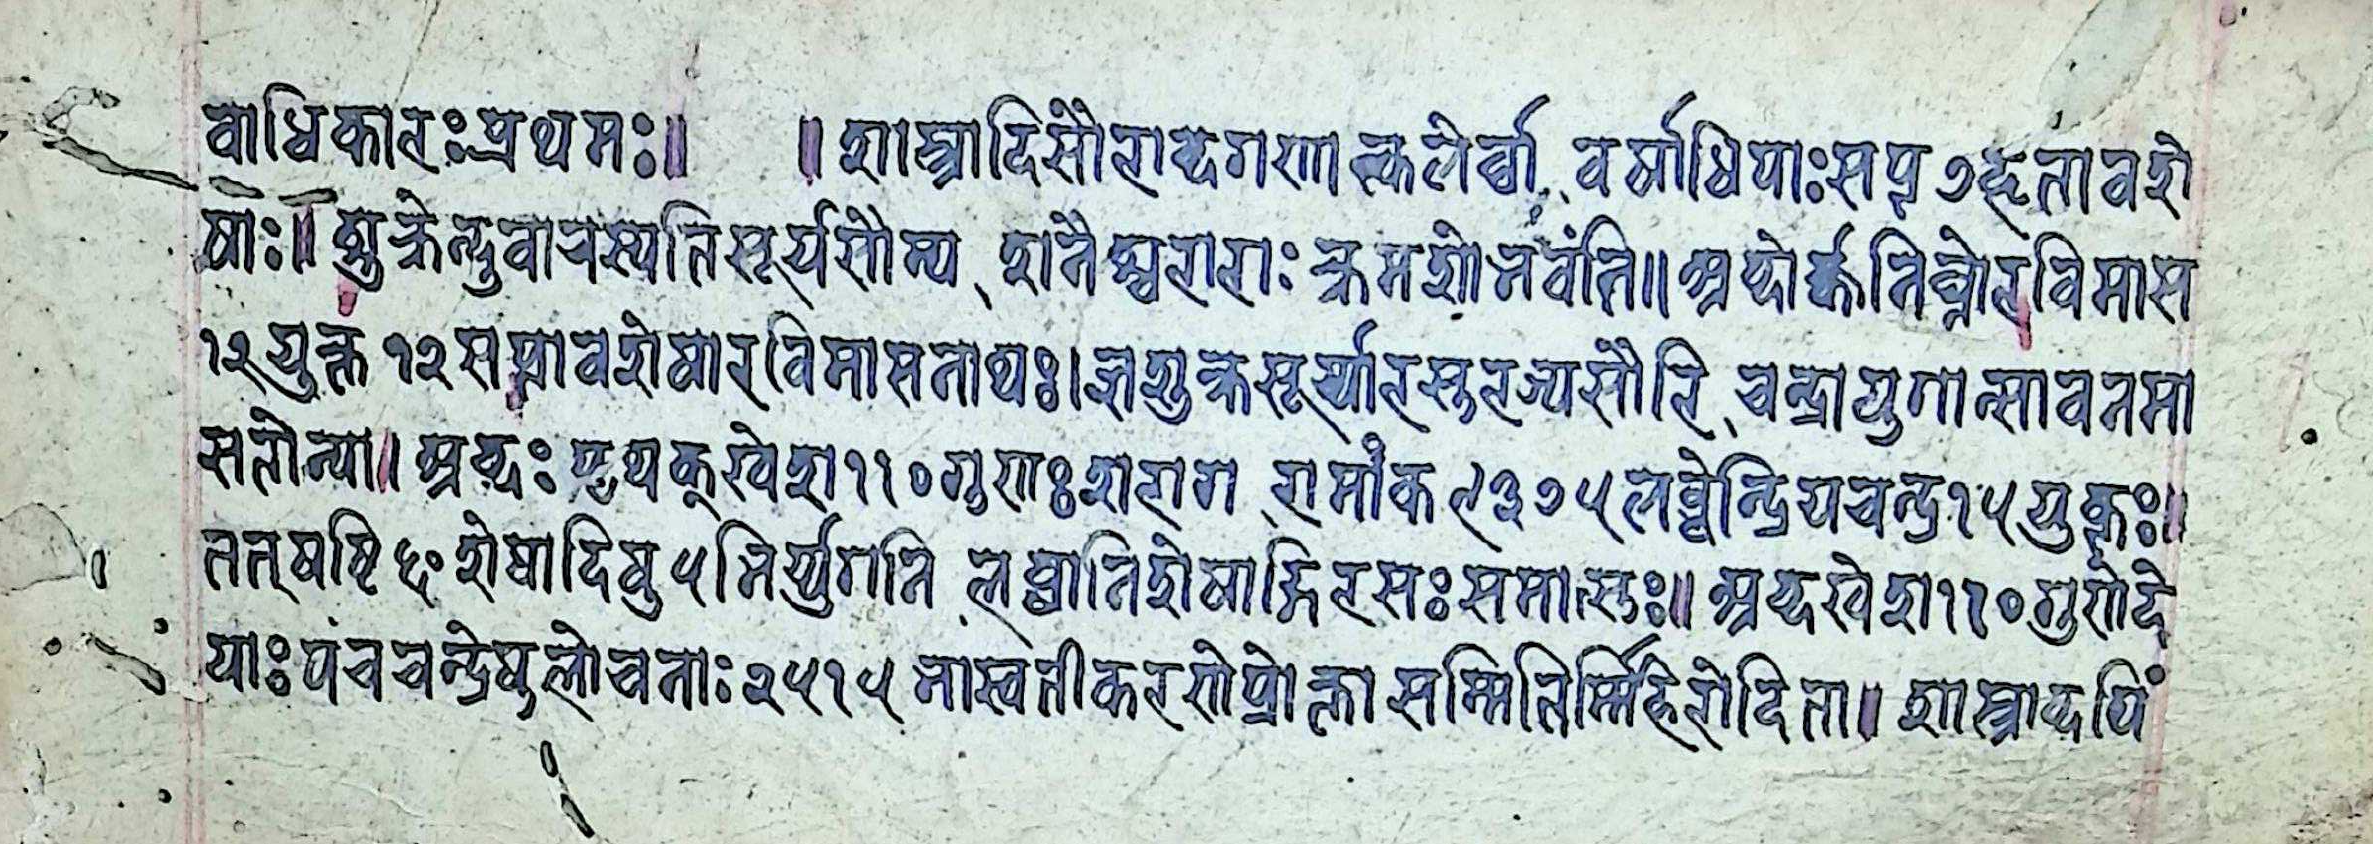 वाधिकारः प्रथमः॥ ॥ शास्त्रादिसौराब्दगणात्कलेर्वा वर्षाधिपाः सप्त ७ हृतावशे
षाः॥ शुक्रेन्दुवाचस्पतिसूर्यसौम्य शनैश्चराराः क्रमशो भवंति॥ अब्दोर्क्कनिघ्नो रविमास
१२ युक्त १२ सप्तावशेषा रविमासनाथः। ज्ञशुक्रसूर्य्यारसुरेज्यसौरि चन्द्रा युगात्सावनमा
सतोन्या। अब्दः पृथक् खेश ११० गुणाः शराग रामांक ९३७५ लब्धेन्द्रियचन्द्र १५ युक्तः॥
तत् षष्टि ६० शेषादिषु ५ भिर्य्युगानि लब्धानि शेषाङ्गिरसः समास्तुः॥ अब्द खेश ११० गुणो दे
याः पंचचन्द्रेषुलोचनाः २५१५ भास्वतीकरणे प्रोक्ता सम्मितिर्म्मिहिरोदिता॥ शास्त्राब्दपिं